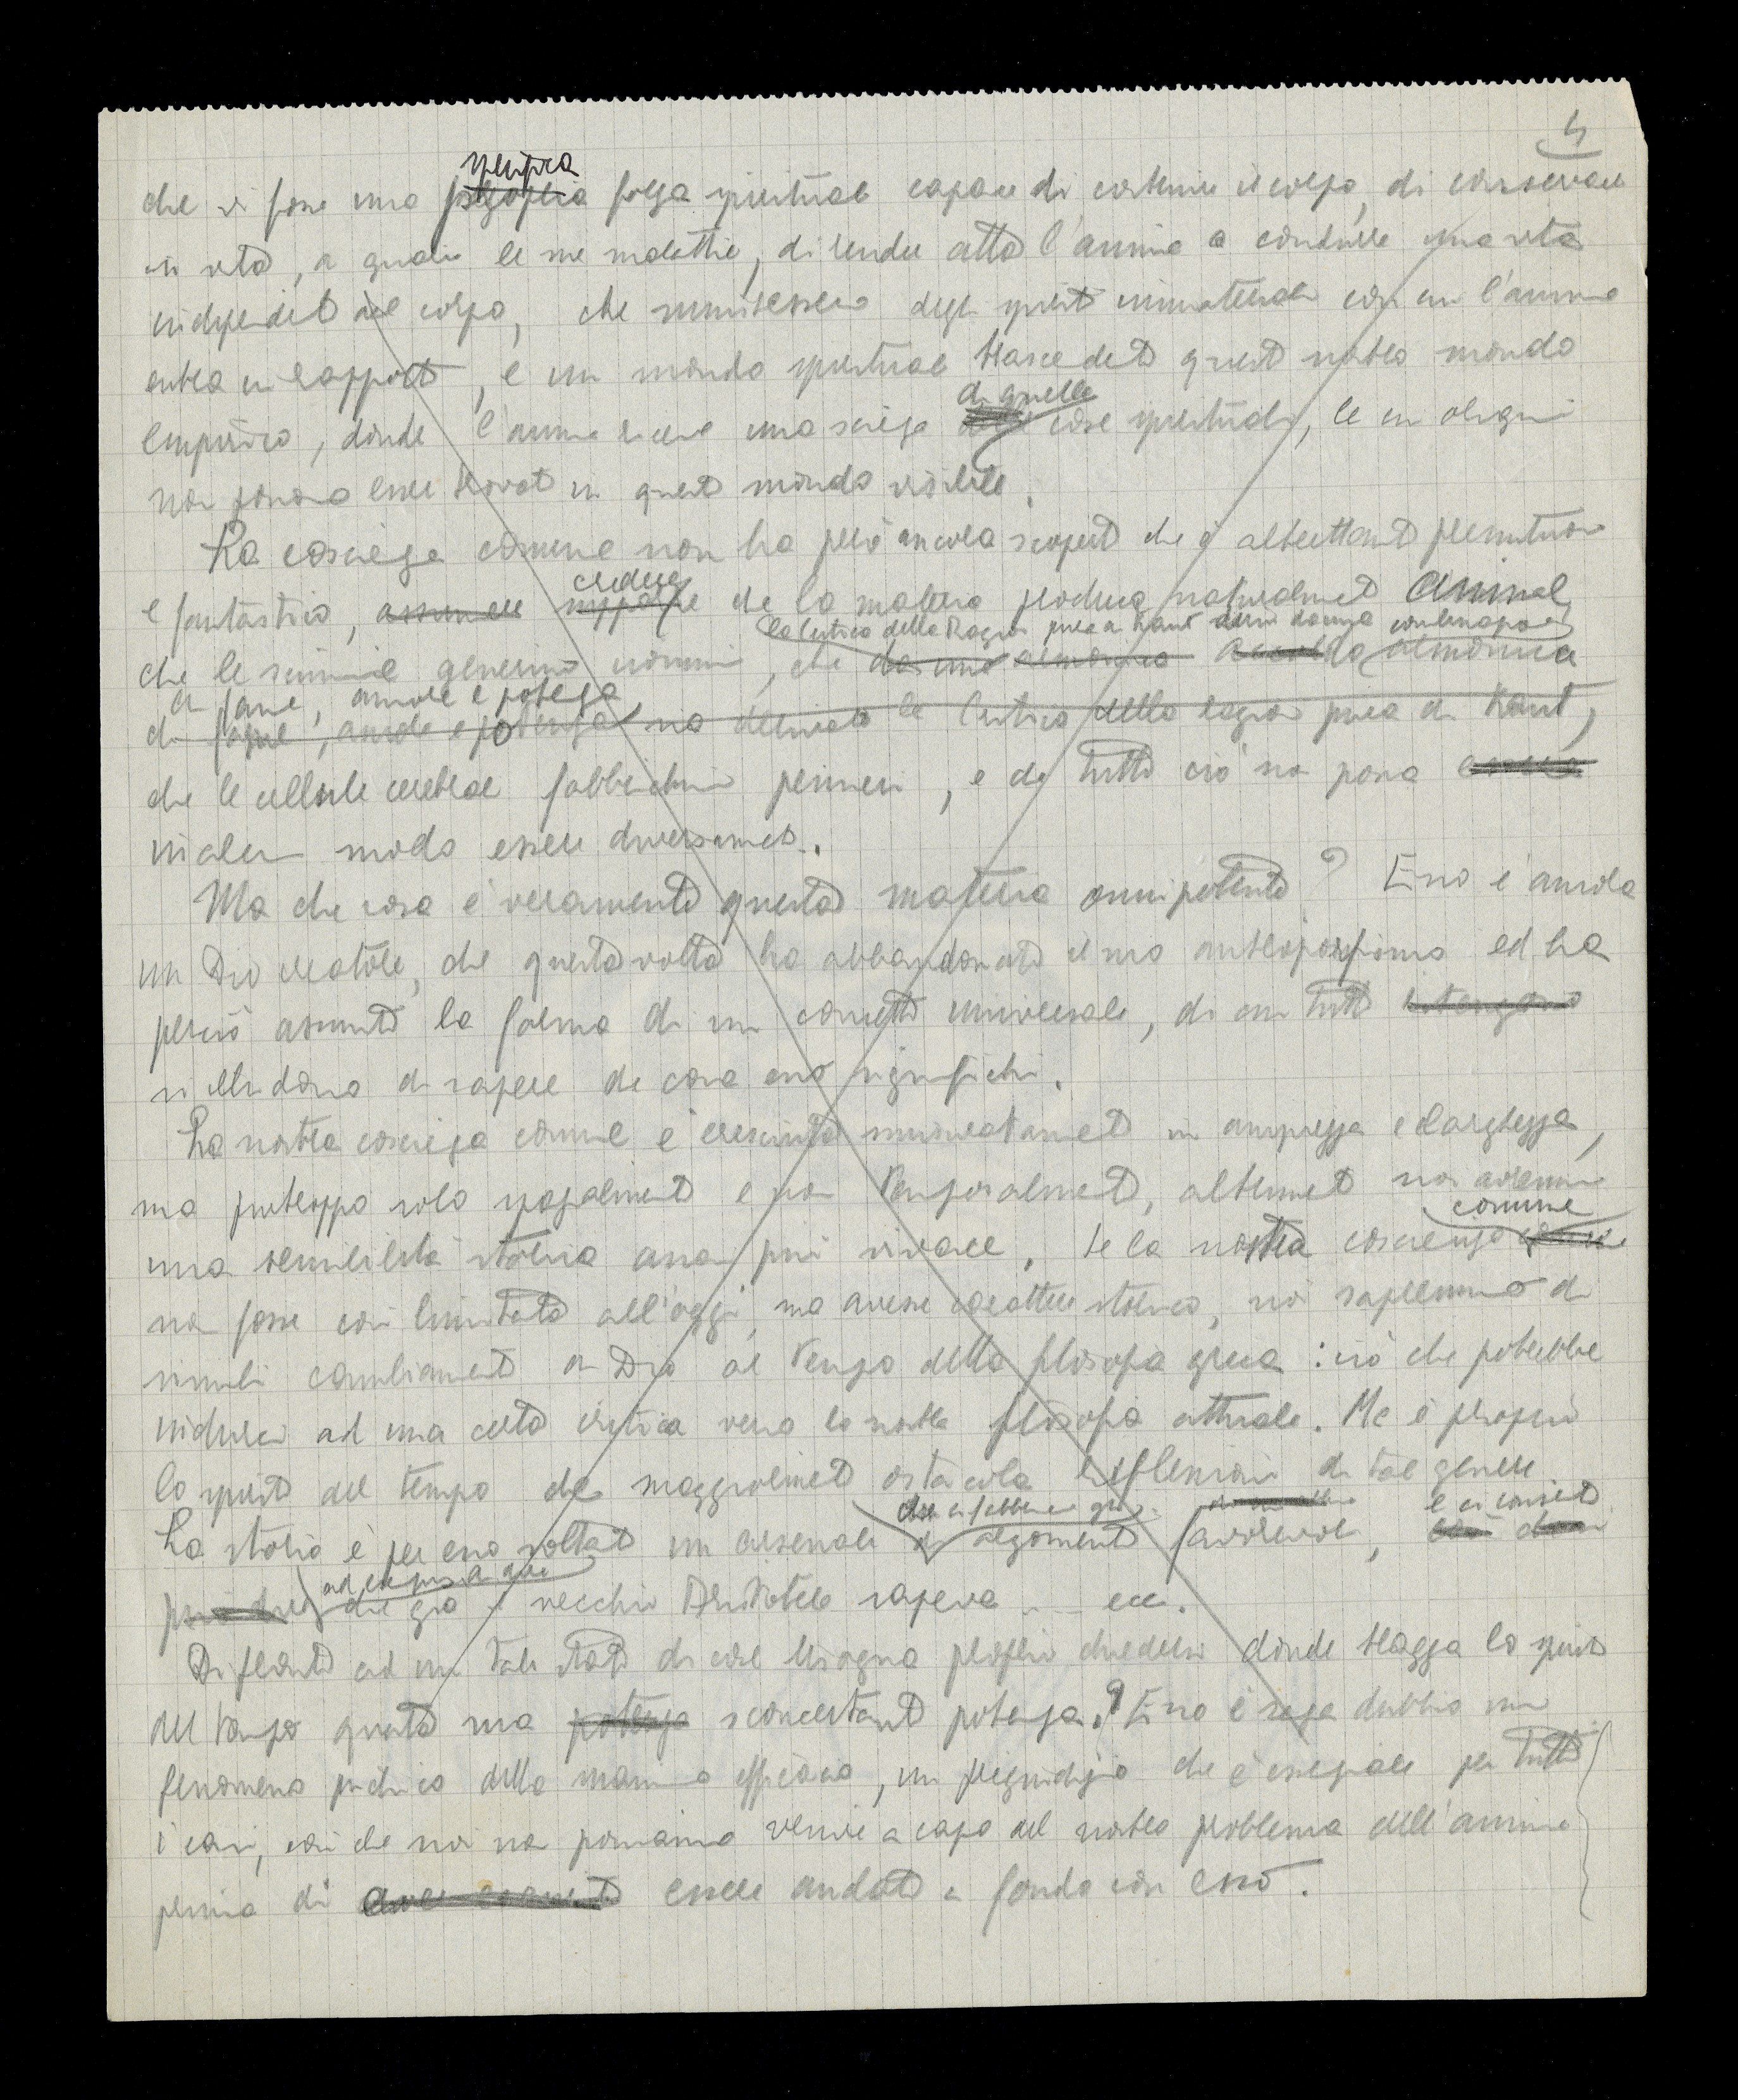 4
specifica
che vi fosse una propria forza spirituale capace di costruire il corpo, di conservare
in vita, a guarire le sue malattie, di rendere atta l'anima a condurre una vita
indipendente dal corpo, che ... degli spiriti immateriali con cui l'anima
entra in rapporto, e un mondo spirituale trascendente questo nostro mondo
di quelle
empirico, donde l'anima riceve una scienza delle cose spirituali, le cui origini
non possono essere trovate in questo mondo visibile.
La coscienza comune non ha però ancora scoperto che è altrettanto presuntuoso
credere
e fantastico, assumere supporre che la materia produca naturalmente anima,
la Critica della Ragion pura a Kant derivi da una combinazione
che le scimmie generino uomini, che da una armonica armonica
di fame, amore e potenza
di fame, amore e potenza sia derivata la Critica della ragion pura di Kant,
che le cellule cerebrali fabbrichino pensieri, e che tutto ciò non possa essere
in alcun modo essere diversamente.
Ma che cosa è veramente questa materia onnipotente? Esso è ancora
un Dio creatore, che questa volta ha abbandonato il suo antropomorfismo ed ha
perciò assunto la forma di un concetto universale, di cui tutti
si illudono di sapere che cosa esso significhi.
La nostra coscienza comune è cresciuta smisuratamente in ampiezza e larghezza,
ma purtroppo solo spazialmente e non temporalmente, altrimenti noi avremmo
comune
una sensibilità storica assai più vivace. Se la nostra coscienza comune
non fosse così limitata all'oggi, ma avesse carattere storico, noi sapremmo di
simili cambiamenti di Dio al tempo della filosofia greca: ciò che potrebbe
indurci ad una certa critica verso la nostra filosofia attuale. Ma è proprio
lo spirito del tempo che maggiormente ostacola riflessioni di tal genere.
e ci consente
La storia è per esso soltanto un arsenale di argomenti favorevoli,
ad esempio di dire
che già il vecchio Aristotele sapeva ... ecc.
Di fronte ad un tale stato di cose bisogna proprio chiedersi donde tragga lo spirito
del tempo questa sua potenza sconcertante potenza? Esso è senza dubbio un
fenomeno psichico della massima efficacia, un pregiudizio che è essenziale per tutti
i casi, così che noi non possiamo venire a capo del nostro problema dell'anima
prima di essere andati a fondo con esso.